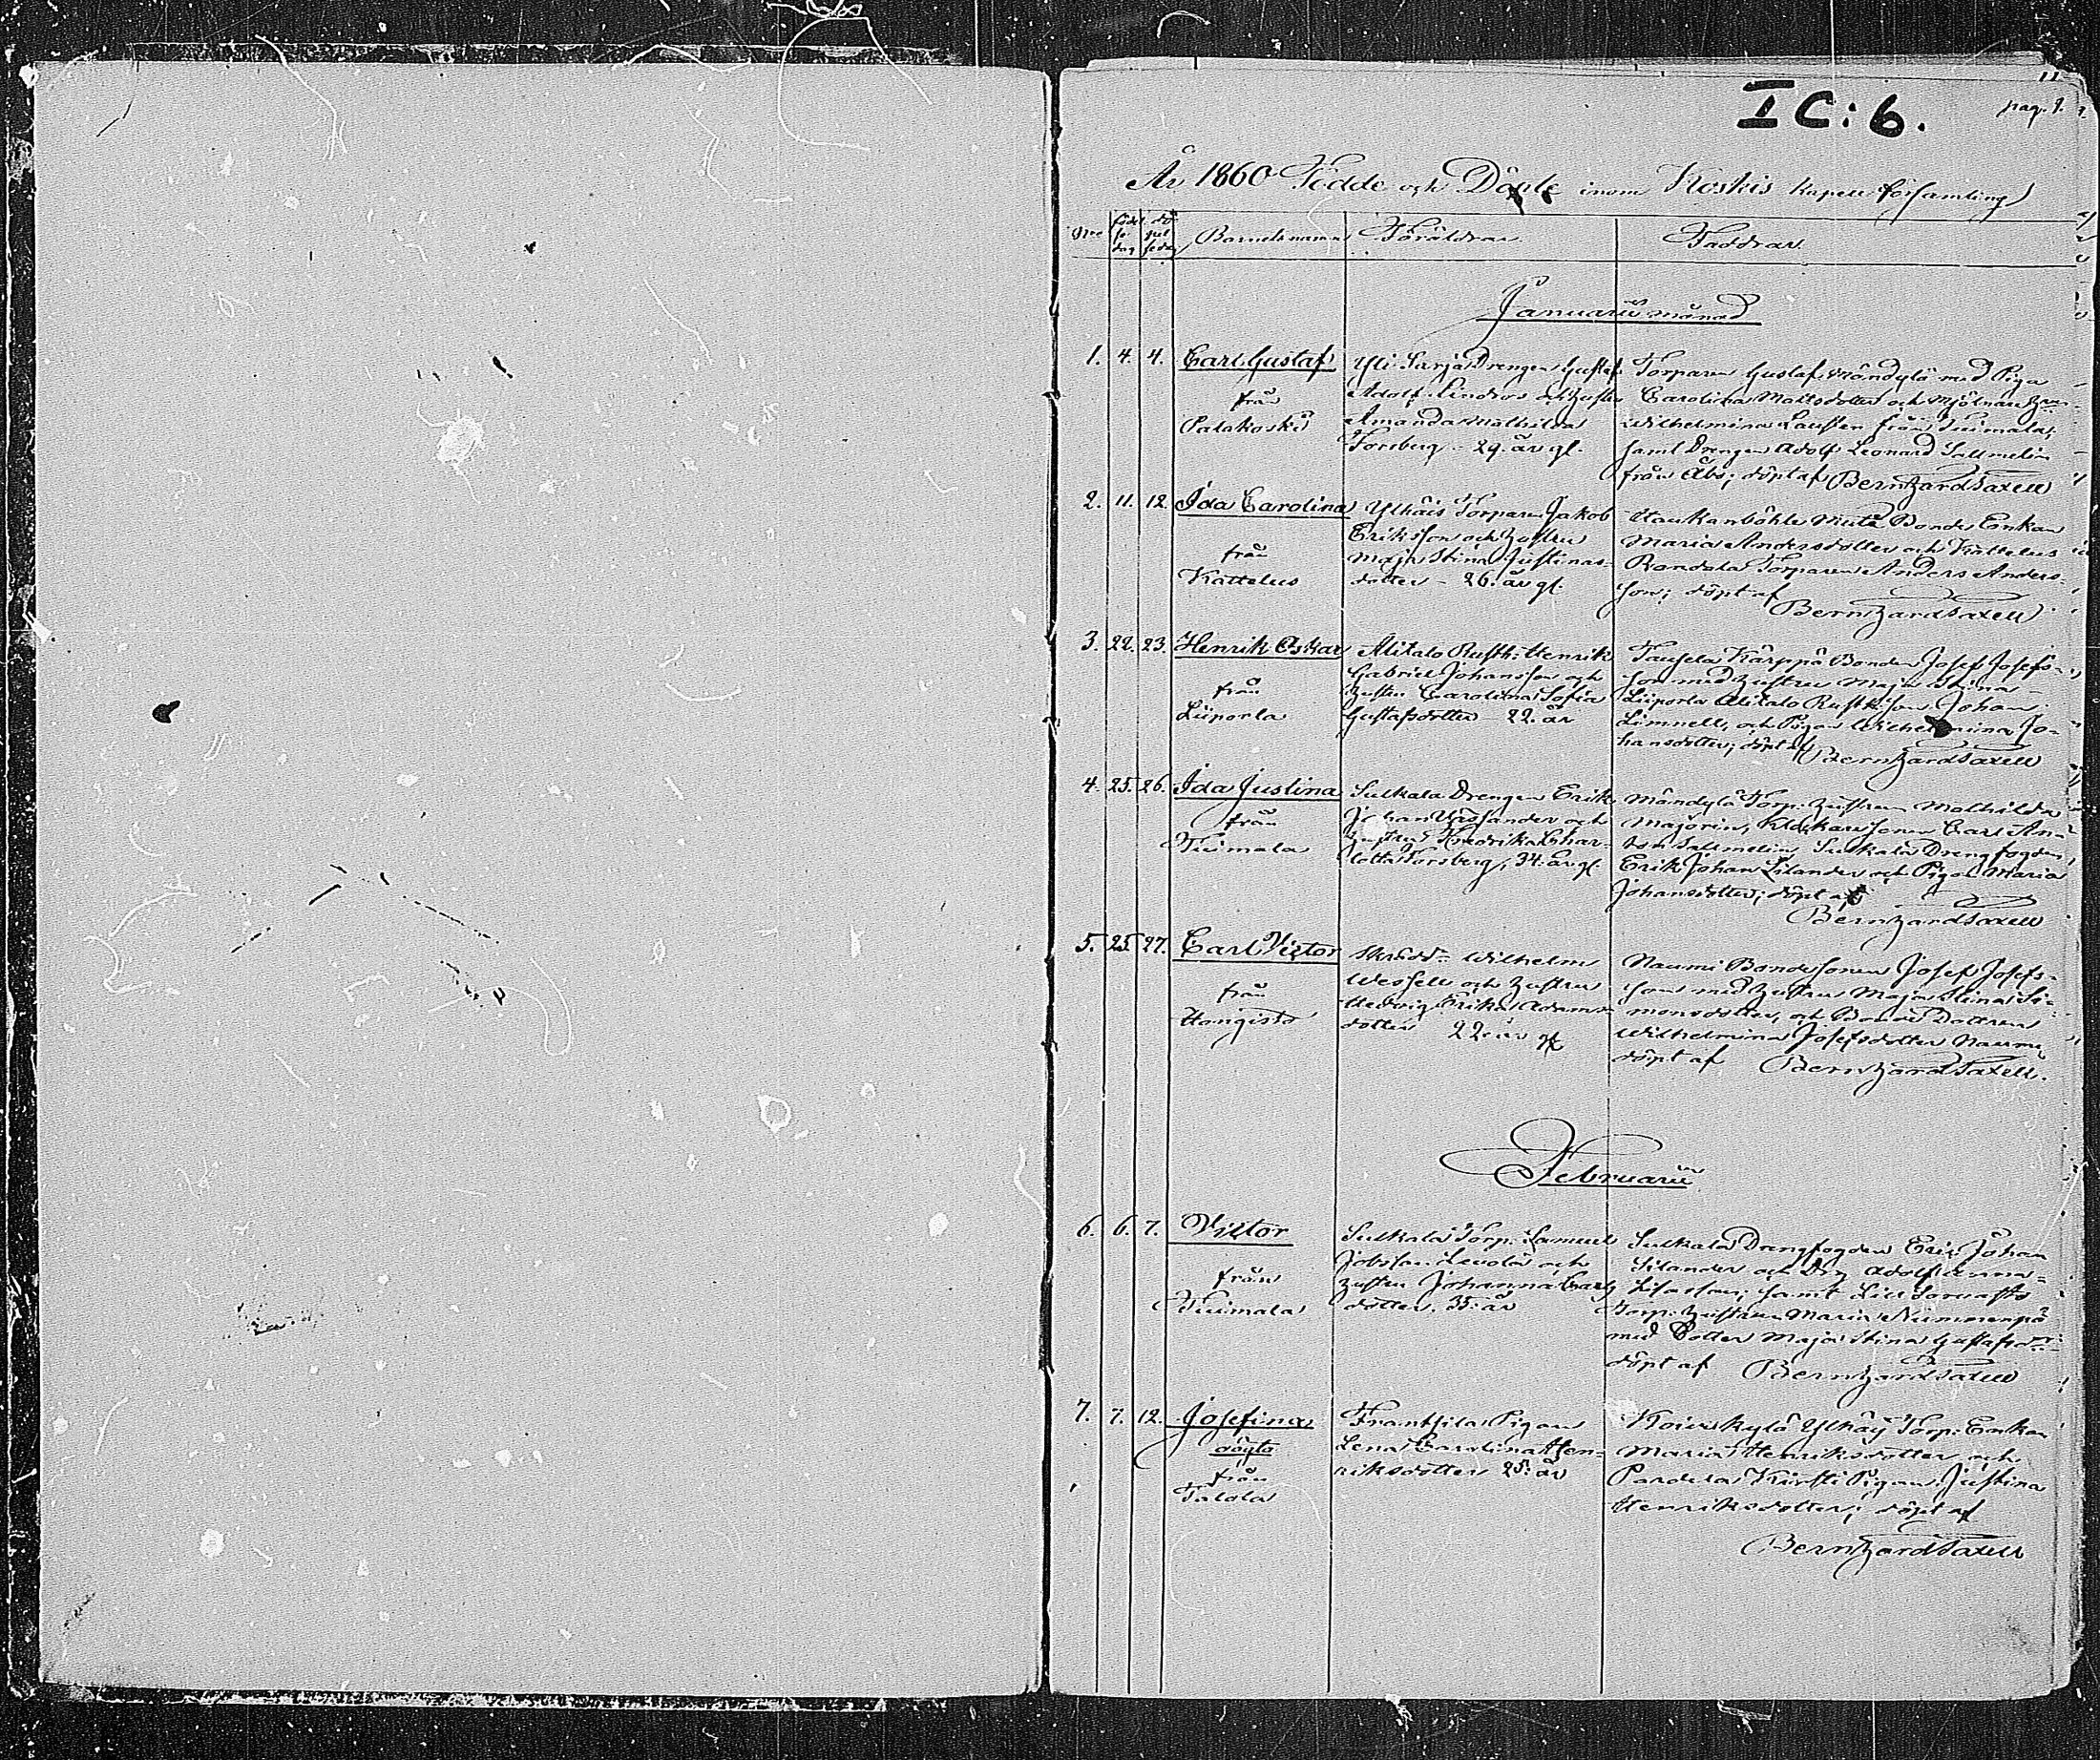 11
I C: 6.
pag. 1.
År 1860 Födde och Döpte inom Koskis kapell församling
Nro födelsedag döpelsedag Barnets namn Föräldrar Faddrar
Januarii månad
1. 4. 4. Carl Gustaf
från
Palakoski
Yli Sarja Drengen Gustaf
Adolf Lindros och Hustru
Amanda Mathilda
Forsberg - 29. år gl.
Torparen Gustaf Mändylä med Piga
Carolina Mattsdotter och Mjölnare
Wilhelmina Lausten från Tuimala;
samt Drengen Adolf Leonard Sallmelin
från Åbo; döpt af Bernhard Saxell
2. 11. 12. Ida Carolina
från
Kattelus
Ylhäis Torparen Jakob
Eriksson och Hustru
Maja Stina Justinas-
dotter - 26. år gl.
Bonde Enkan
Maria Andersdotter och Kattelus
Randala Torparen Anders Anders-
son; döpt af
Bernhard Saxell
3. 22. 23. Henrik Oskar
från
Liiporla
Alitalo Rusth: Henrik
Gabriel Johansson och
Hustru Carolina Sofia
Gustafsdotter 22. år
Tausela Kärppä Bonden Josef Josefs-
son med Hustru Maja Stina
Liiporla Alitalo Rusth:sson Johan
Limnell, och Pigan Wilhelmina Jo-
hansdotter; döpt af
Bernhard Saxell
4. 25. 26. Ida Justina
från
Tuimala
Sulkala Drengen Erik
Johan och
Hustru Fredrika Char-
lotta Forsberg, 34. år gl.
Mändylä Torp: Hustrun Mathilda
Majorin, Klockaresonen Carl An-
ton Sallmelin Sulkala Drengfogden
Erik Johan Silander och Pigan Maria
Johansdotter; döpt af
Bernhard Saxell
5. 25. 27. Carl Victor
från
Hongisto
Skrädd: Wilhelm
Wessell och Hustru
Hedvig Erika Adams-
dotter 22. år gl.
Naumi Bondesonen Josef Josefs-
son med Hustru Maja Stina Si-
monsdotter, och Bonde Dottren
Wilhelmina Josefsdotter Naumi
döpt af Bernhard Saxell.
Februarii
6. 6. 7. Victor
från
Tuimala
Sulkala Torp. Samuel
Levola och
Hustru Johanna Carls
dotter. 35. år
Sulkala Drengfogden Eric Johan
Silander och Drg Adolf
samt
Torp: Hustrun Maria Nummenpä
med Dotter Maja Stina Gustafsd:r
döpt af Bernhard Saxell
7. 7. 12. Josefina
oägta
från
Talola
Frantsila Pigan
Lena Carolina Hen-
riksdotter 25. år
Koivukylä Ylhäy Torp: Enkan
Maria Henriksdotter och
Pardela Kirsti Pigan Justina
Henriksdotter; döpt af
Bernhard Saxell